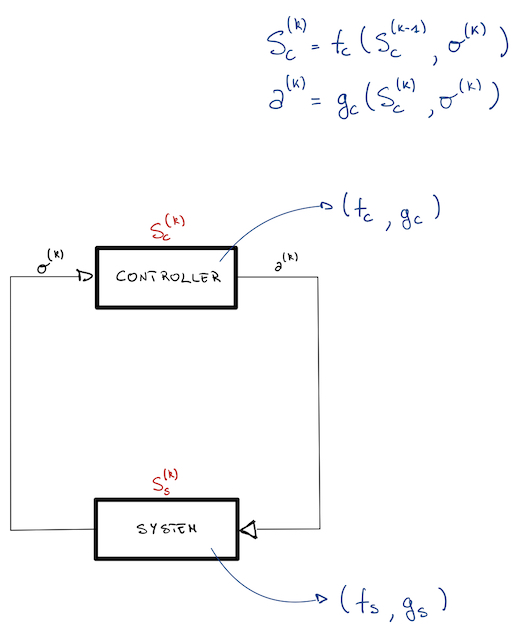 S_c^(k) = f_c (S_c^(k-1), o^(k))
a^(k) = g_c (S_c^(k), o^(k))
(f_c, g_c)
S_c^(k)
o^(k)
CONTROLLER
a^(k)
S_s^(k)
SYSTEM
(f_s, g_s)